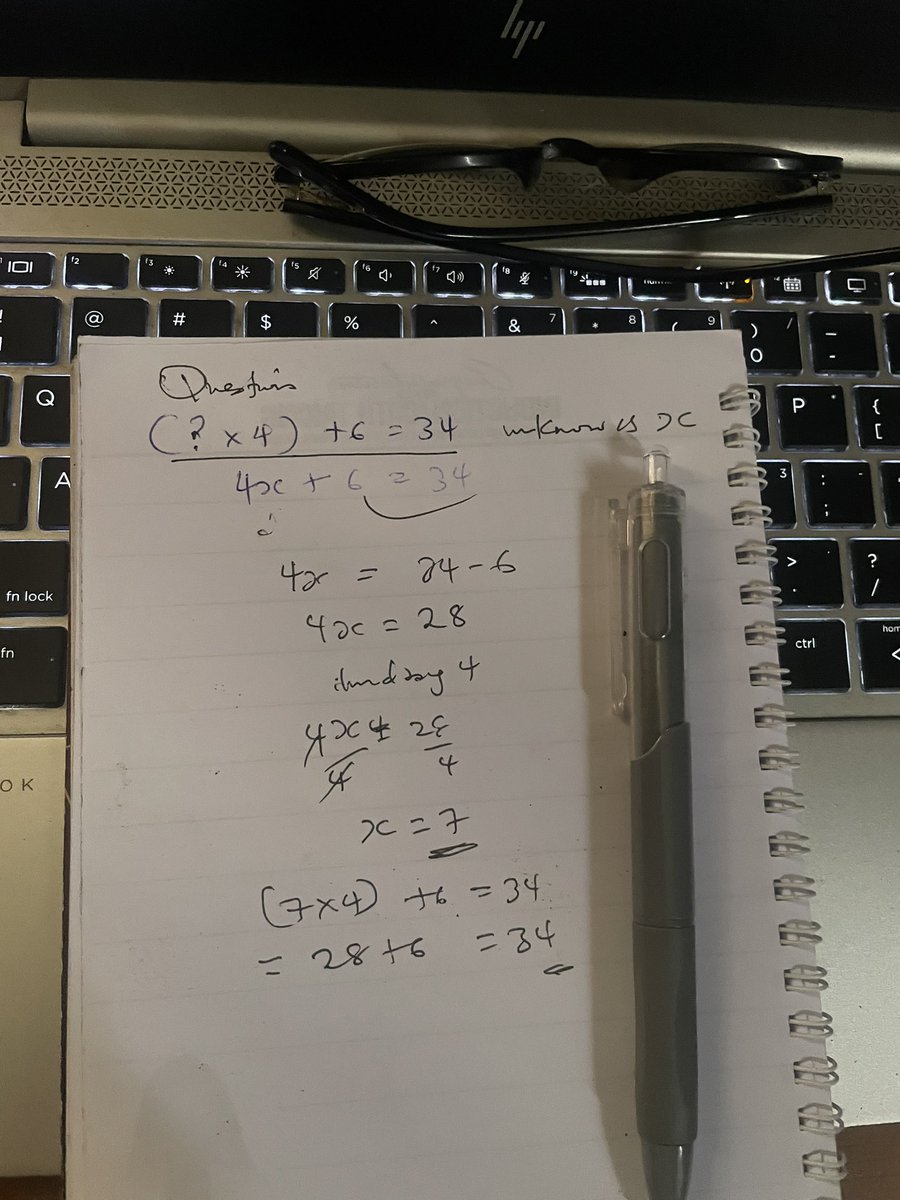 hp
f2 f3 f4 f5 f6 f7 f8 f9
@ # $ % ^ & 7 * 8 ( 9 ) 0 / _ -
Q P { [
A 3 : ;
fn lock > . ? /
fn ctrl
O K
Question
(? x 4) + 6 = 34 unknown is x
4x + 6 = 34
4x = 34 - 6
4x = 28
4
4x = 28
4 4
x = 7
(7x4) +6 = 34
= 28 + 6 = 34